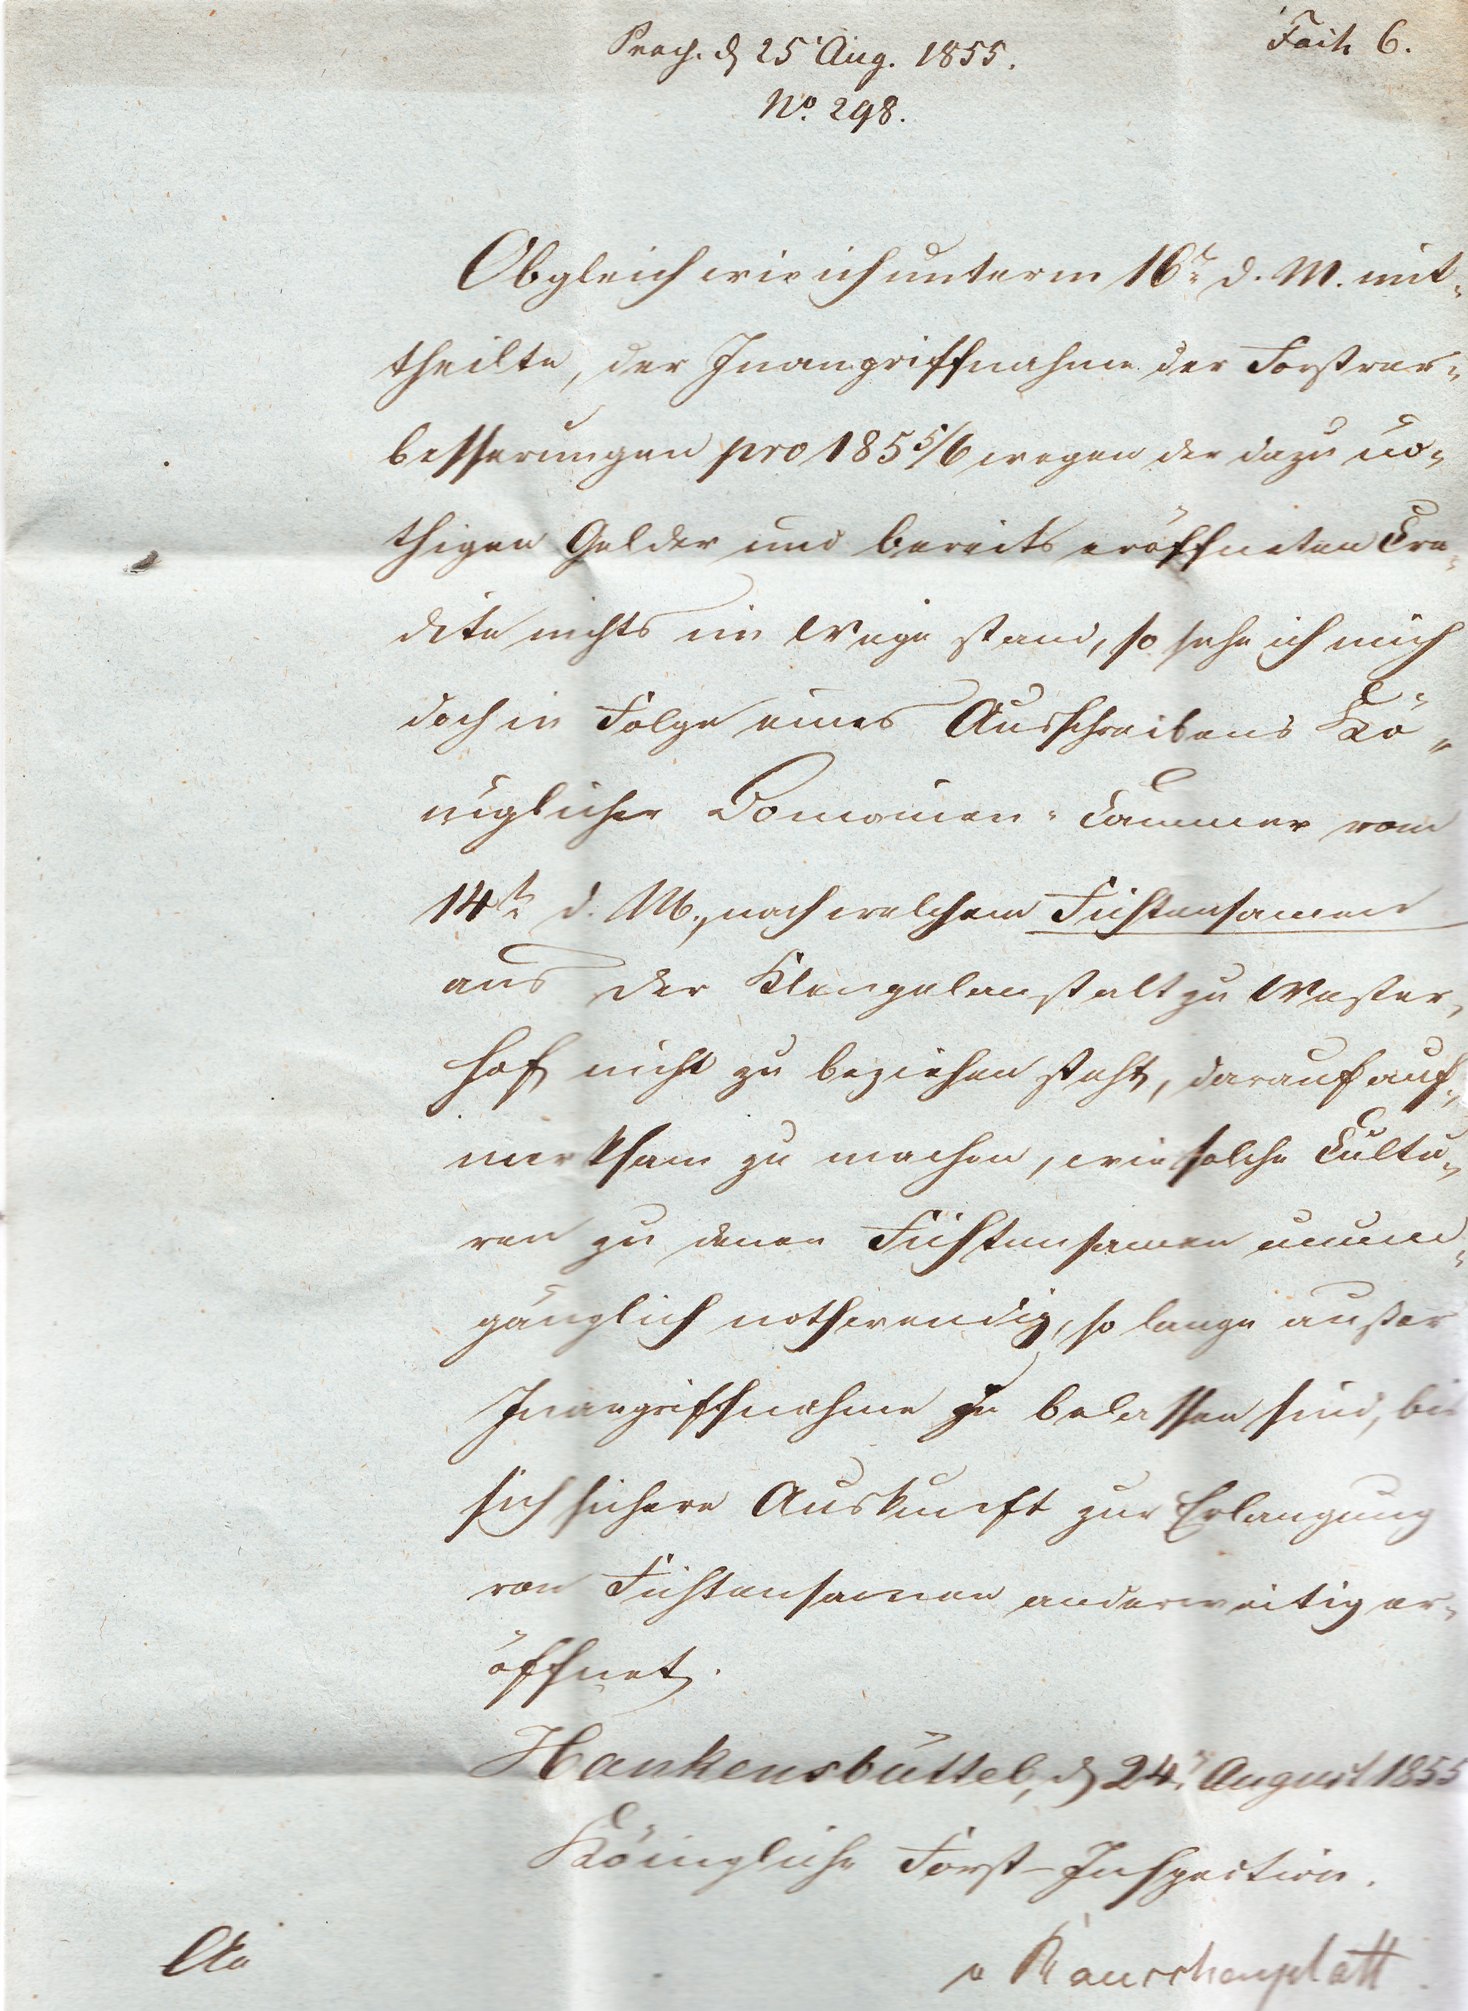 Praes. d 25 Aug. 1855.
Fach 6.
No. 298.
Obgleich wie ich unterm 16t d. M. mit-
theilte, der Inangriffnahme der Forstver-
besserungen pro 1855/6 wegen der dazu nö-
thigen Gelder und bereits eröffneten Cre-
dite nichts im Wege stand, so sehe ich mich
doch in Folge eines Ausschreibens Kö-
niglicher Domainen-Cammer vom
14t d. M., nach welchem Fichtensamen
aus der Klengelanstalt zu Wester-
hof nicht zu beziehen steht, darauf auf-
merksam zu machen, wie solche Cultu-
ren zu denen Fichtensamen unum-
gänglich nothwendig, so lange außer
Inangriffnahme zu belassen sind, bis
sich sichere Auskunft zur Erlangung
von Fichtensamen anderweitig er-
öffnet.
Hankensbüttel, d 24t August 1855
Königliche Forst-Inspection.
v Rauschenplatt
An